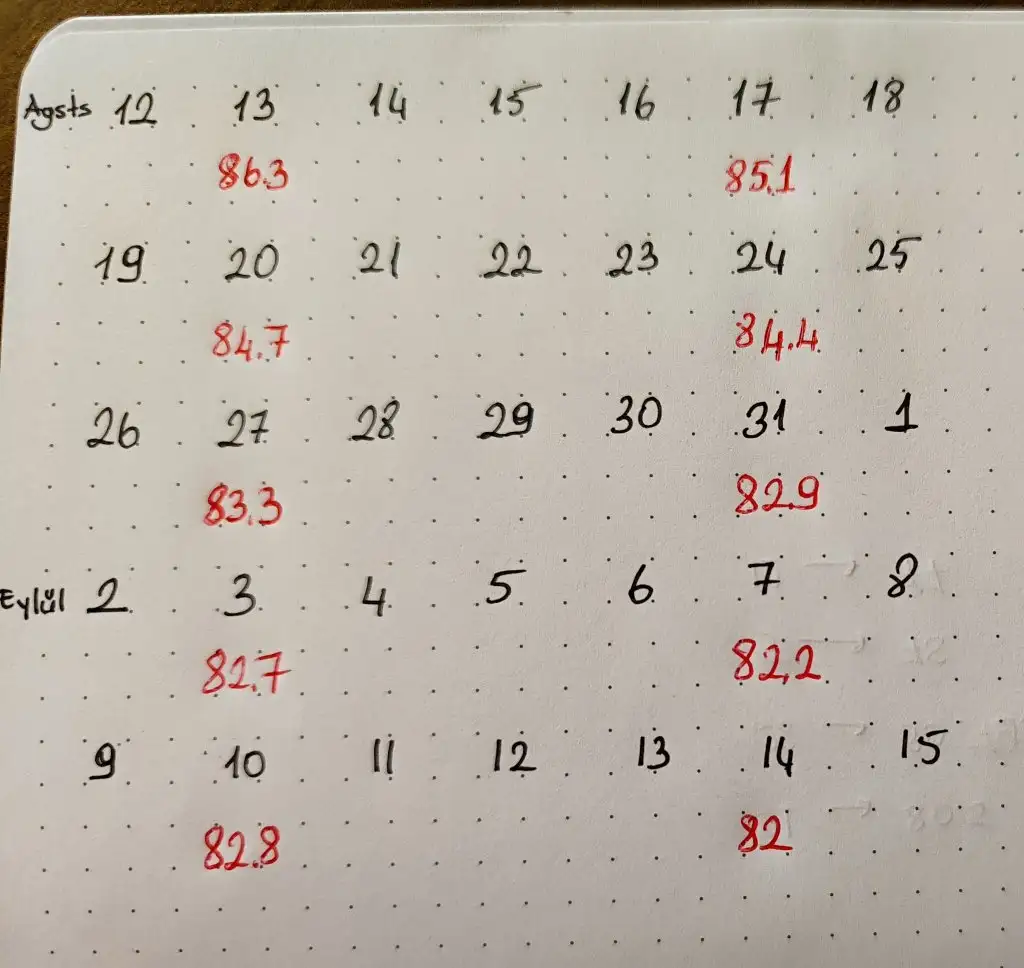 Agsts 12 13 14 15 16 17 18
86.3 85.1
19 20 21 22 23 24 25
84.7 84.4
26 27 28 29 30 31 1
83.3 82.9
Eylül 2 3 4 5 6 7 8
82.7 82,2
9 10 11 12 13 14 15
82.8 82